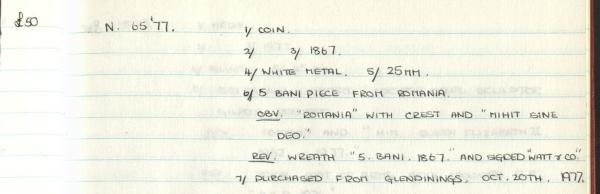 £50 N. 65'77. 1/ COIN.
2/ 3/ 1867.
4/ WHITE METAL. 5/ 25MM.
6/ 5 BANI PIECE FROM ROMANIA.
OBV. "ROMANIA" WITH CREST AND "MIHIT SINE
DEO."
REV. WREATH "5. BANI. 1867." AND SIGNED "WATT & CO."
7/ PURCHASED FROM GLENDININGS. OCT. 20TH. 1977.